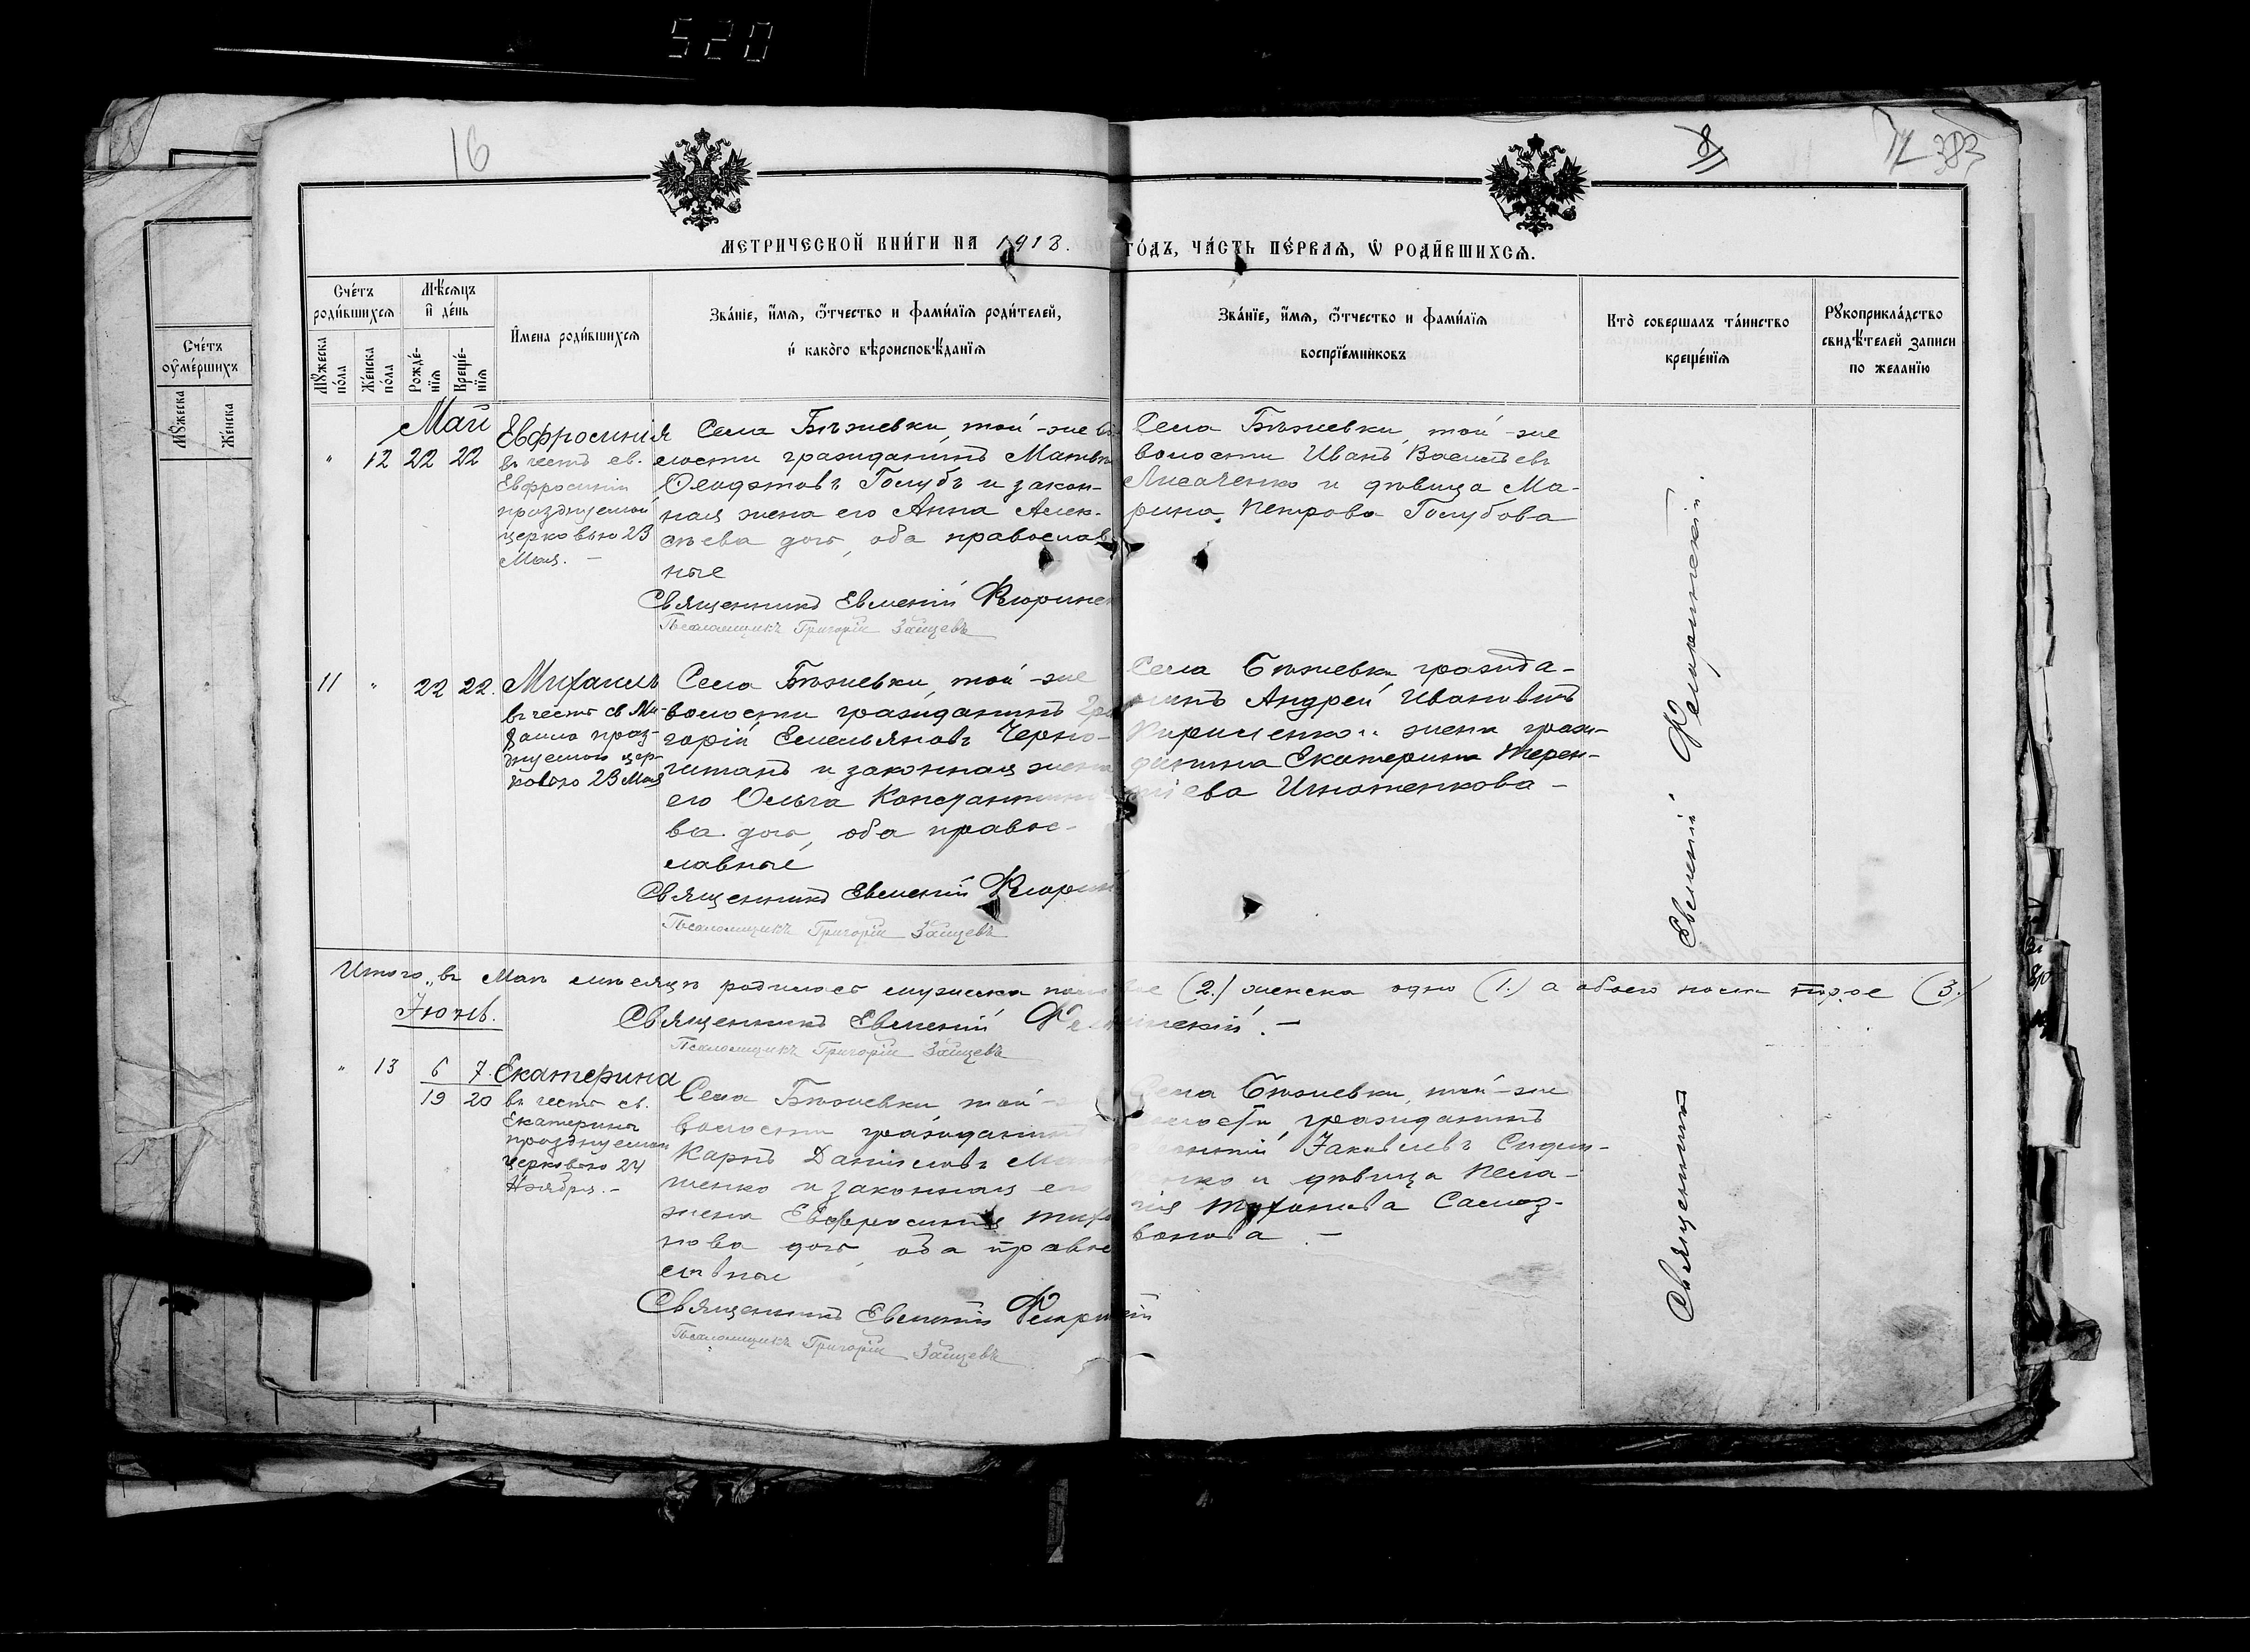 520
16
12 383
МЕТРИЧЕСКОЙ КНИ́ГИ НА 1918. ГО́ДЪ, ЧА́СТЬ ПЕ́РВАЯ, Ѿ РОДИ́ВШИХСЯ.
Сче́тъ роди́вшихся
Мѣ́сяцъ и де́нь
Му́жеска по́ла
Же́нска по́ла
Рожде́нія
Креще́нія
Имена роди́вшихся
Зва́ніе, и́мя, о́тчество и фами́лія роди́телей,
и како́го вѣроисповѣ́данія
Зва́ніе, и́мя, о́тчество и фами́лія
воспріе́мниковъ
Кто̀ соверша́лъ та́инство
креще́нія
Рукоприкла́дство
свидѣ́телей записи
по жела́нію
Сче́тъ
оуме́ршихъ
Му́жеска
Же́нска
Май
" 12 22 22
Евфросинія
въ честь св.
Евфросиніи
празднуемой
церковью 23
Мая. –
Села Бѣжевки, той-же во-
лости гражданинъ Матвѣй
Голубъ и закон-
ная жена его Анна Алек-
сѣева дочь, оба православ
ные
Священникъ Евмений Флорин
Псаломщикъ Григорій Зайцевъ
Села Бѣжевки, той-же
волости Иванъ Васильевъ
Лисаченко и дѣвица Ма-
рина Петрова Голубова
11 " 22 22.
Михаилъ
въ честь св. Ми-
хаила праз-
днуемой цер-
ковью 23 Мая
Села Бѣжевки, той-же
волости гражданинъ Гри
горій Емельяновъ Черно-
штанъ и законная жена
его Ольга Константино
ва дочь, оба право-
славные
Священникъ Евмений Флорин
Псаломщикъ Григорій Зайцевъ
Села Бѣжевки гражда-
нинъ Андрей Ивановичъ
Кириченко и жена граж-
данина Екатерина Терен-
тіева Игнатенкова –
Итого въ Маѣ мѣсяцѣ родилось мужска пола двое (2.) женска одно (1.) а обоего пола трое (3.)
Іюнь.
Священникъ Евмений Флоринскій. –
Псаломщикъ Григорій Зайцевъ
" 13 6 7.
19 20
Екатерина
въ честь св.
Екатерины
празднуемой
церковью 24
Ноября. –
Села Бѣжевки, той-же
волости гражданинъ
Карпъ Даниловъ
шенко и законная его
жена Евфросинія Тихо
нова дочь, оба право
славные
Священникъ Евмений Флоринскій
Псаломщикъ Григорій Зайцевъ
Села Бѣжевки, той-же
волости гражданинъ
Яковлевъ Сидор-
енко и дѣвица Пела-
гія Самоз-
ванова –
Священникъ Евмений Флоринскій.